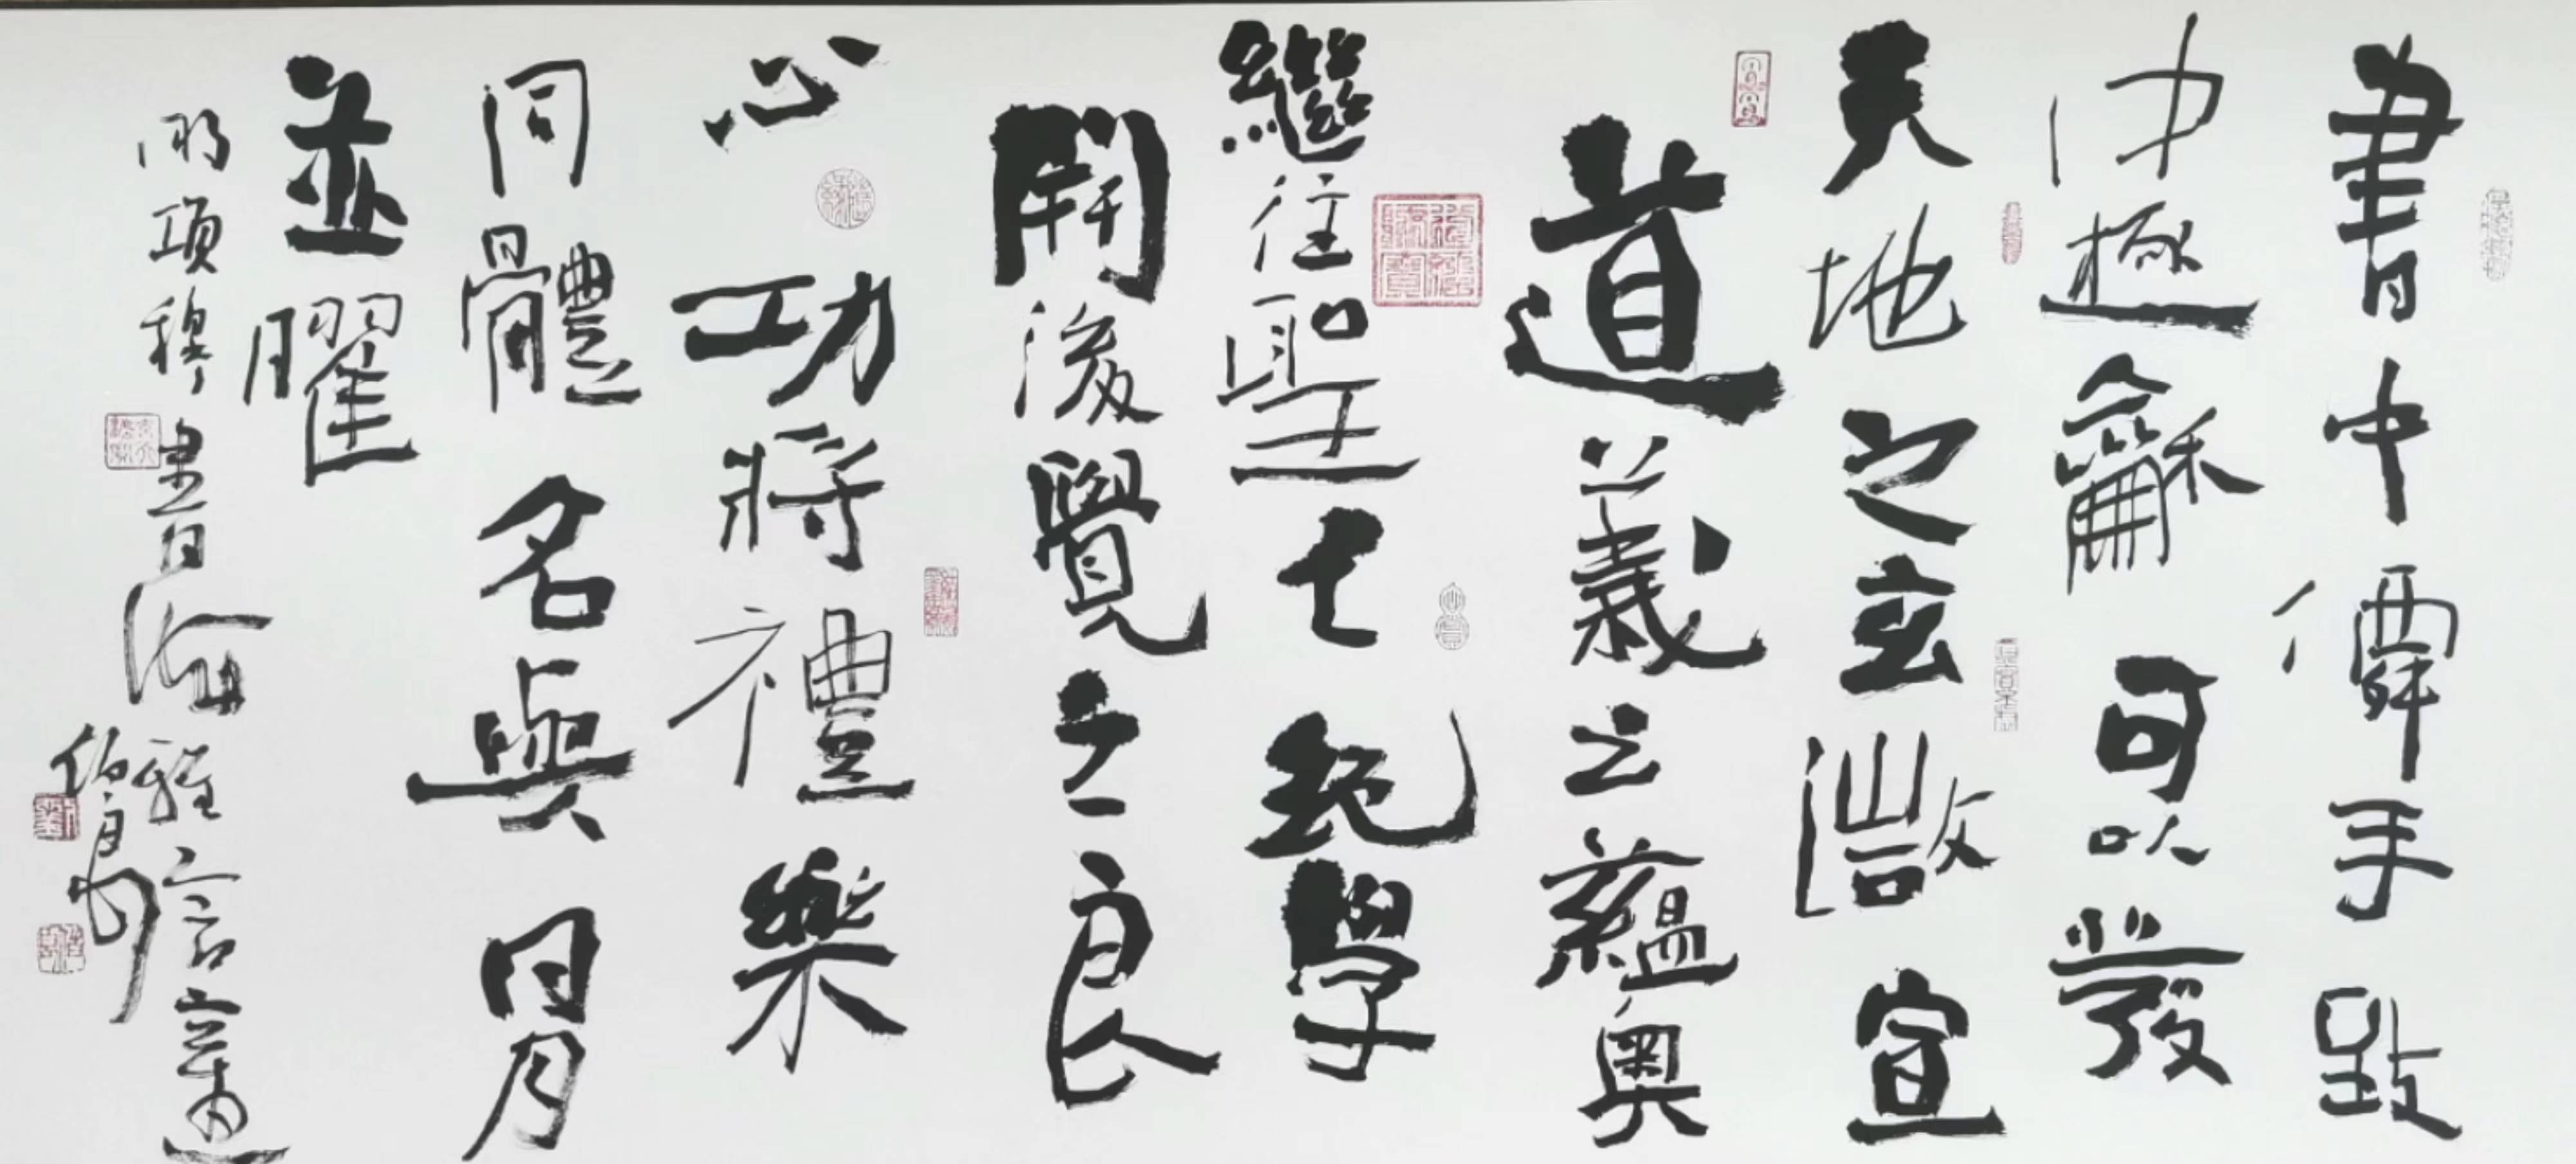 書中僊手致
中極龢可以發
天地之玄微宣
道義之蘊奧
繼往聖之絕學
開後覺之良
心功將禮樂
同體名與日月
並曜
明項穆書法雅言